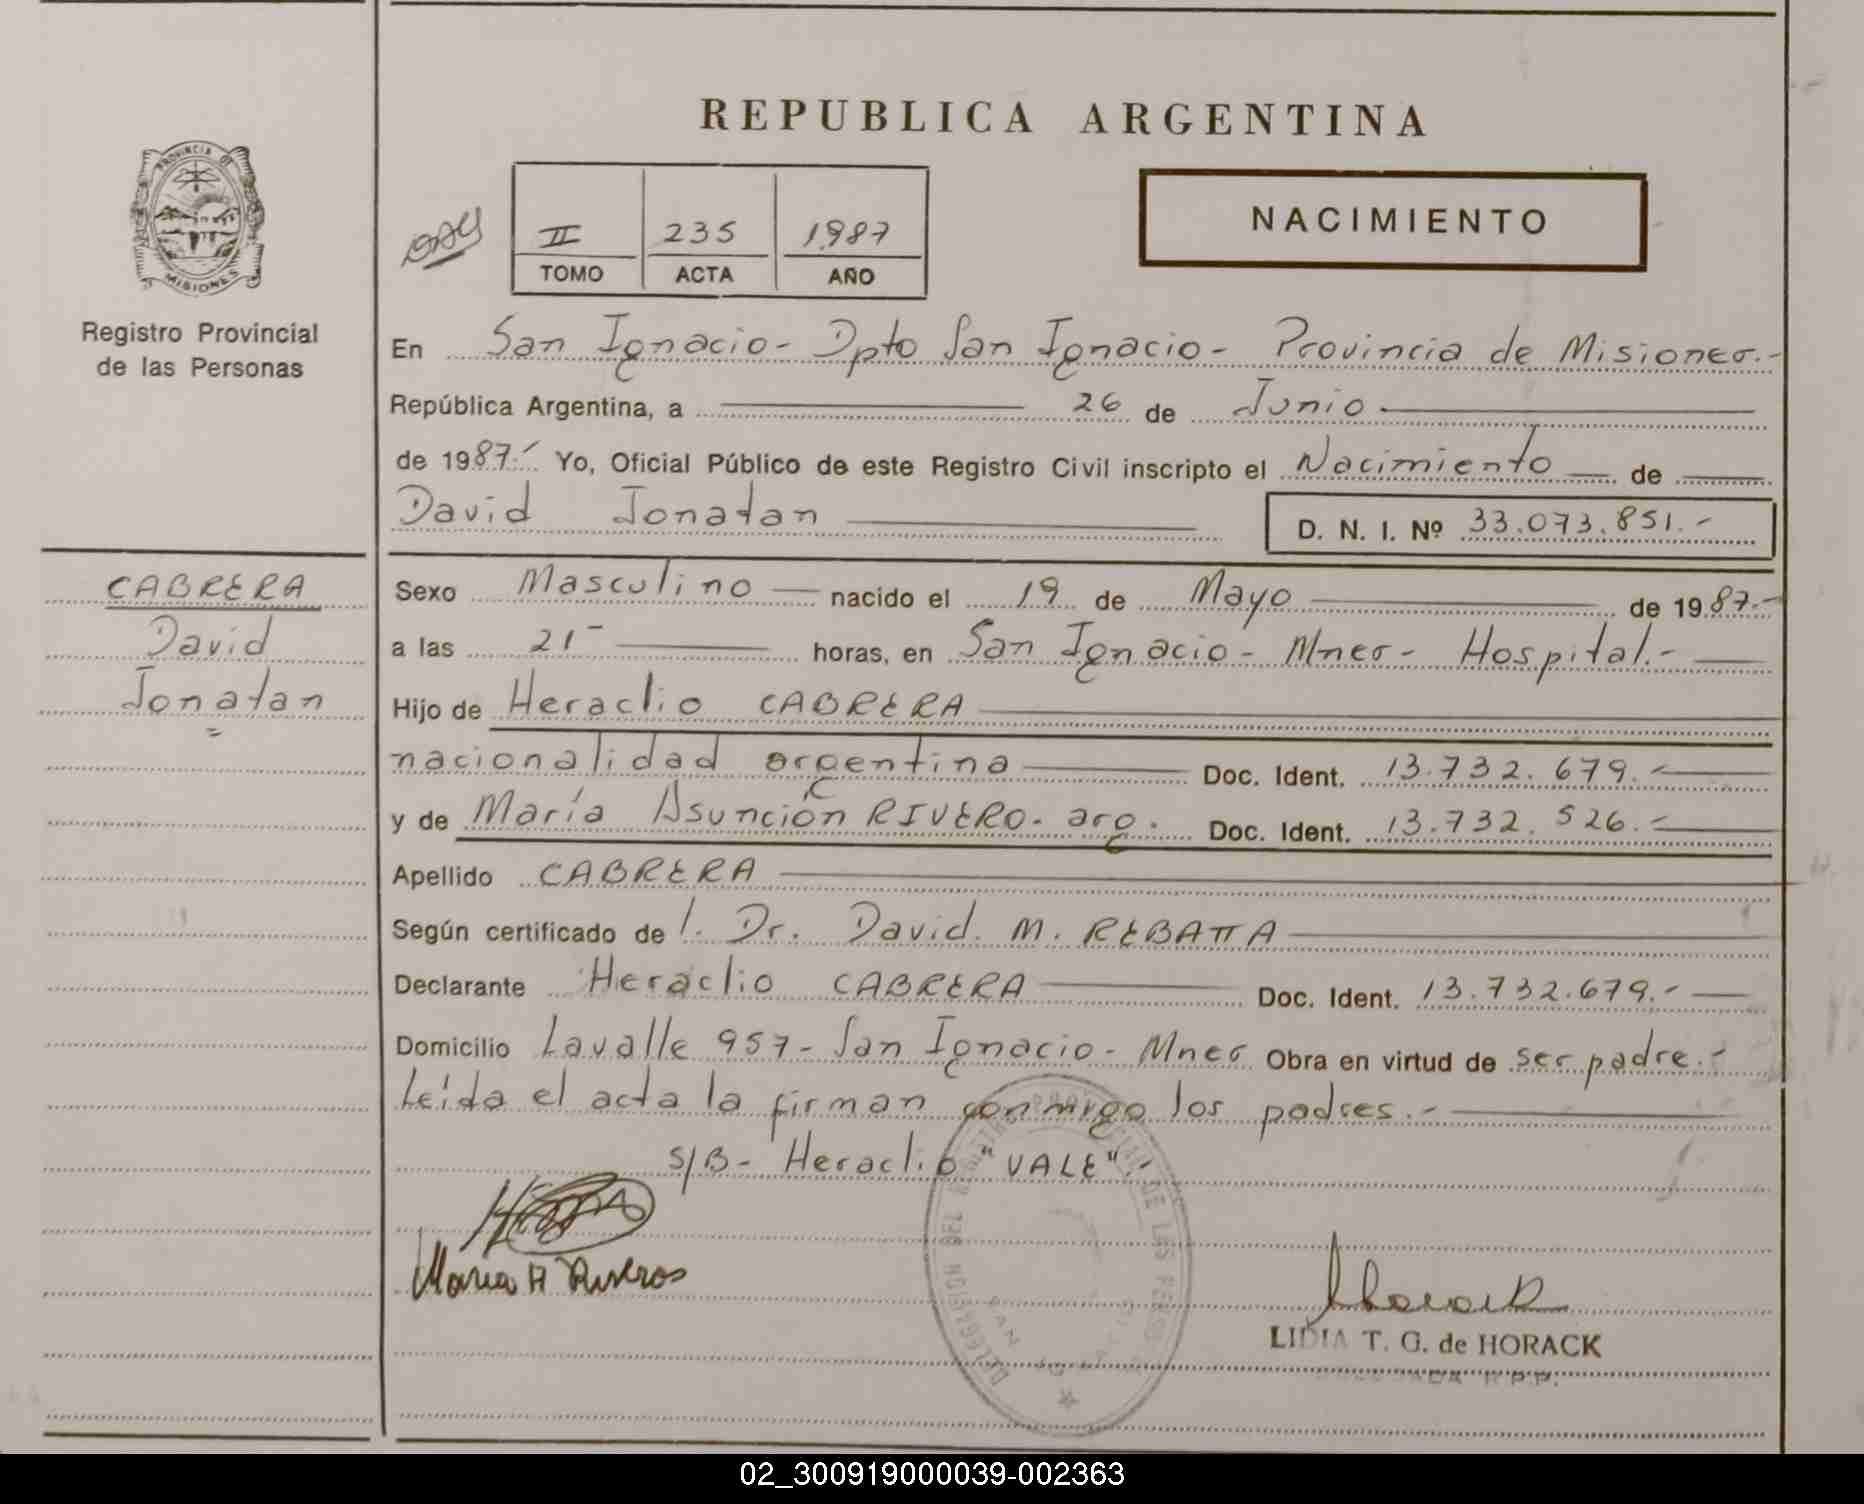 REPUBLICA ARGENTINA
PROVINCIA DE
MISIONES
Registro Provincial
de las Personas
II 235 1987
TOMO ACTA AÑO
NACIMIENTO
En San Ignacio - Dpto San Ignacio - Provincia de Misiones.-
República Argentina, a 26 de Junio
de 1987.- Yo, Oficial Público de este Registro Civil inscripto el Nacimiento de
David Jonatan
D. N. I. Nº 33.073.851.-
CABRERA
David
Jonatan
Sexo Masculino nacido el 19 de Mayo de 1987.-
a las 21 horas, en San Ignacio - Mnes - Hospital.-
Hijo de Heraclio CABRERA
nacionalidad argentina Doc. Ident. 13.732.679.-
y de María Asunción RIVERO. arg. Doc. Ident. 13.732.526.-
Apellido CABRERA
Según certificado de l. Dr. David. M. REBATTA
Declarante Heraclio CABRERA Doc. Ident. 13.732.679.-
Domicilio Lavalle 957 - San Ignacio - Mnes Obra en virtud de ser padre.-
Leída el acta la firman conmigo los padres.-
S/B - Heraclio "VALE".-
Maria A Riveros
DELEGACION DEL REGISTRO PROVINCIAL DE LAS PERSONAS
SAN IGNACIO
LIDIA T. G. de HORACK
DELEGADA R.P.P.
02_300919000039-002363